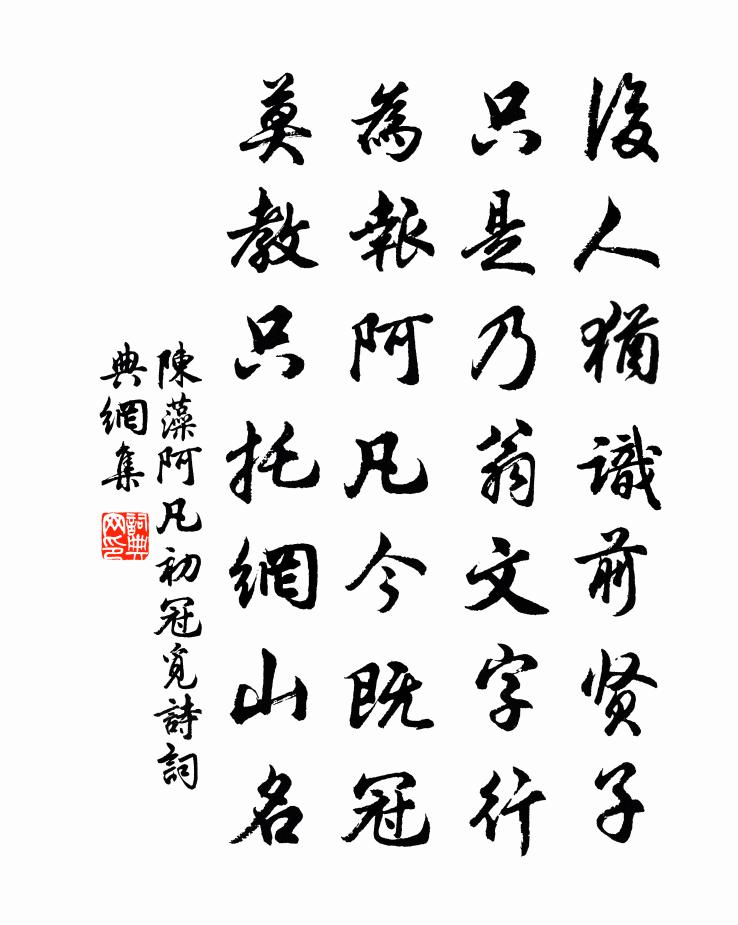 後人猶識前贤子
只是乃翁文字行
為報阿凡今既冠
莫教只托網山名
陳藻阿凡初冠覓詩詞
典網集
詞典
网印